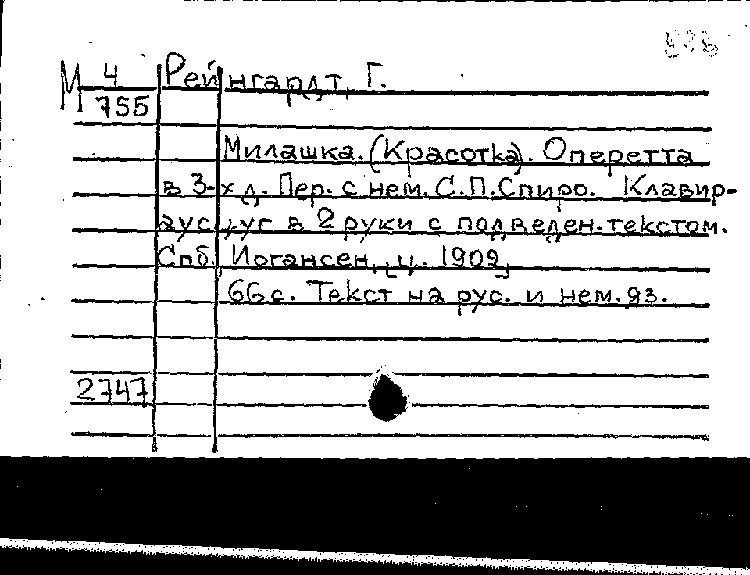 М 4 Рейнгардт, Г.
755
Милашка. (Красотка). Оперетта
в 3-х д. Пер. с нем. С.П.Спиро. Клавир-
аусцуг в 2 руки с подведен. текстом.
Спб. Иогансен, ц. 1909,
66 с. Текст на рус. и нем. яз.
2747